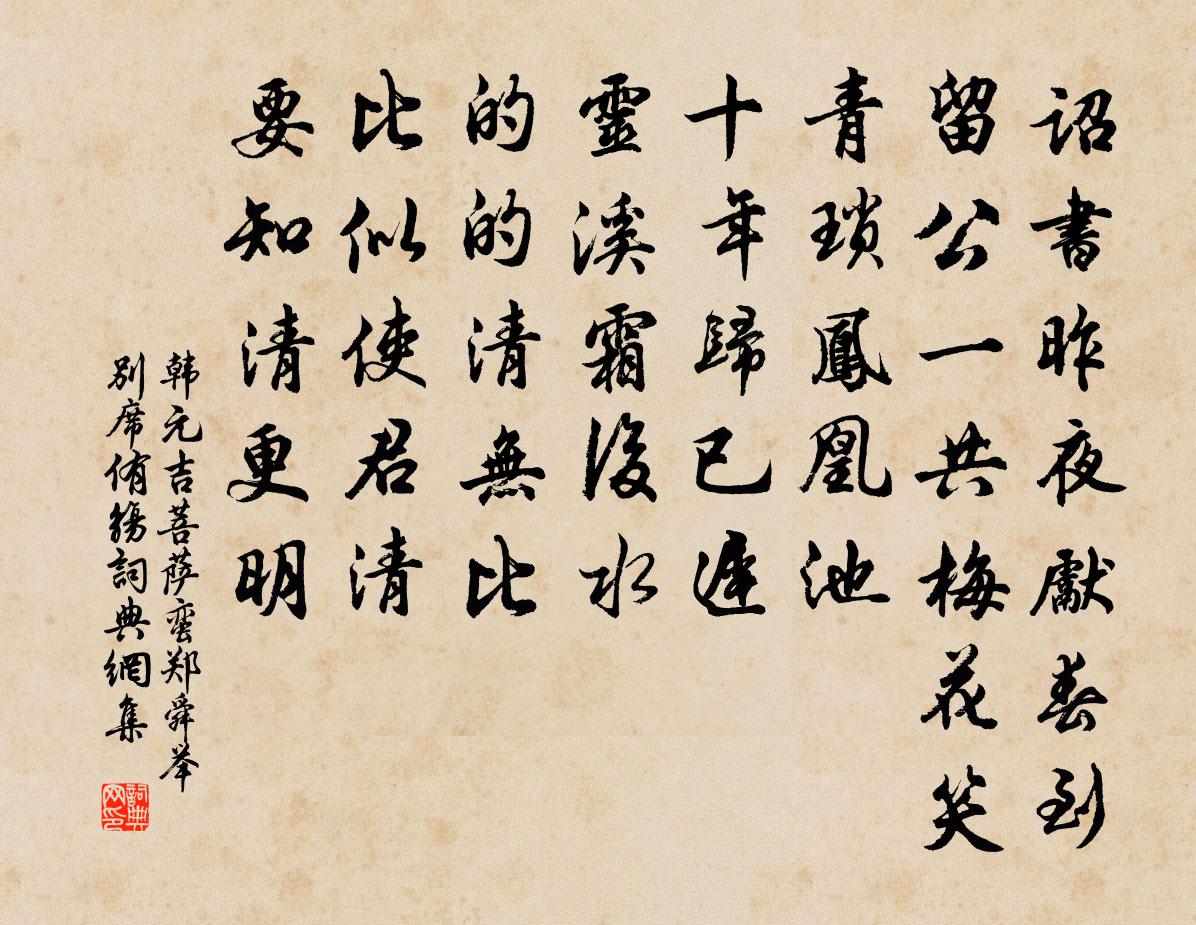 詔書昨夜獻春到
留公一共梅花笑
青瑣鳳凰池
十年歸已遲
靈溪霜後水
的的清無比
比似使君清
要知清更明
韩元吉菩萨蛮郑舜举
别席侑觞詞典網集
詞典网印